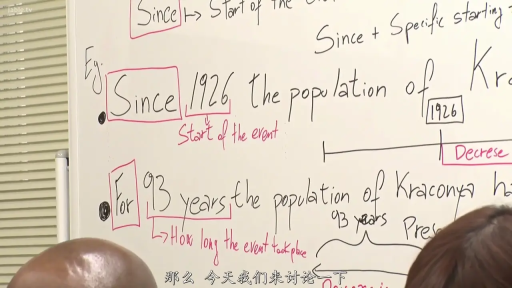 Since → Start of the
Since + Specific starting
Eg.
Since 1926 the population of Kra
1926
Start of the event
Decrese
For 93 years the population of Kraconya ha
93 years
Pres
How long the event took place
那么 今天我们来讨论一下